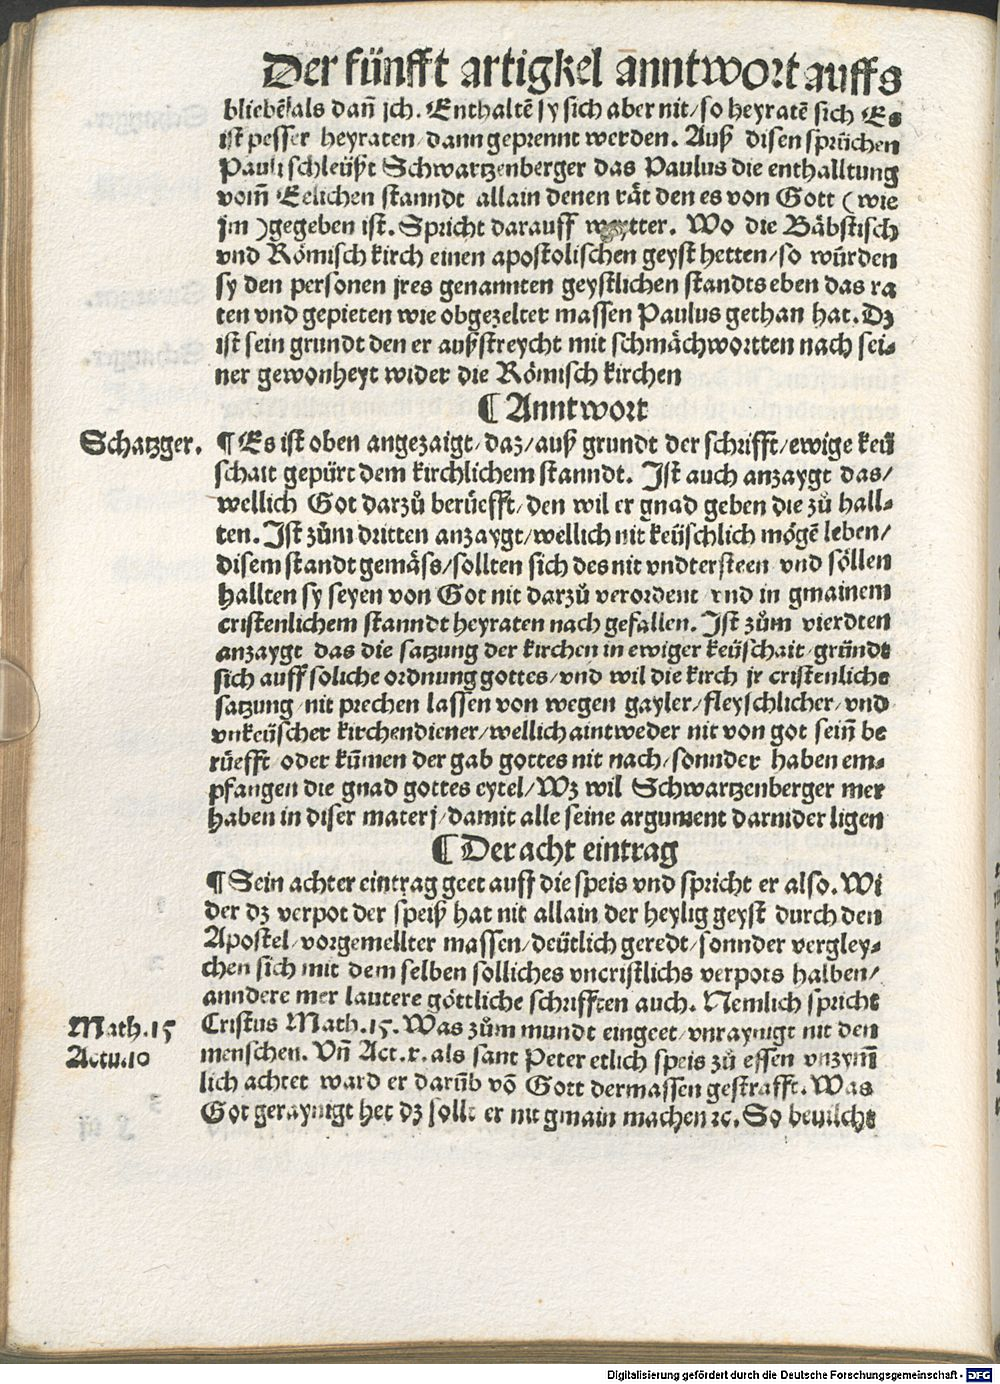 Der fünfft artigkel anntwort auffs
bliebē/als dañ jch. Enthaltē sy sich aber nit/so heyratē sich Es
ist pesser heyraten/dann geprennt werden. Auß disen sprüchen
Pauli schleüßt Schwartzenberger das Paulus die enthalltung
vom̄ Eelichen stanndt allain denen rät den es von Gott (wie
jm )gegeben ist. Spricht darauff weytter. Wo die Bäbstisch
vnd Römisch kirch einen apostolischen geyst hetten/so würden
sy den personen jres genannten geystlichen standts eben das ra
ten vnd gepieten wie obgezelter massen Paulus gethan hat. Dz
ist sein grundt den er außstreycht mit schmächwortten nach sei⸗
ner gewonheyt wider die Römisch kirchen
¶ Anntwort
Schatzger. ¶ Es ist oben angezaigt/daz/auß grundt der schrifft/ewige keü
schait gepürt dem kirchlichem stanndt. Ist auch anzaygt das/
wellich Got darzů berüefft/den wil er gnad geben die zů hall⸗
ten. Ist zům dritten anzaygt/wellich nit keüschlich mögē leben/
disem standt gemäss/sollten sich des nit vndtersteen vnd söllen
hallten sy seyen von Got nit darzů verordent vnd in gmainem
cristenlichem stanndt heyraten nach gefallen. Ist zům vierdten
anzaygt das die satzung der kirchen in ewiger keüschait/gründt
sich auff soliche ordnung gottes/vnd wil die kirch jr cristenliche
satzung/nit prechen lassen von wegen gayler/fleyschlicher/vnd
vnkeüscher kirchendiener/wellich aintweder nit von got sein̄ be
rüefft/oder kūmen der gab gottes nit nach/sonnder haben em⸗
pfangen die gnad gottes eytel/Wz wil Schwartzenberger mer
haben in diser materj/damit alle seine argument darnider ligen
¶ Der acht eintrag
¶ Sein achter eintrag geet auff die speis vnd spricht er also. Wi
der dz verpot der speiß hat nit allain der heylig geyst durch den
Apostel/vorgemellter massen/deütlich geredt/sonnder vergley⸗
chen sich mit dem selben solliches vncristlichs verpots halben/
anndere mer lautere göttliche schrifften auch. Nemlich spricht
Math.15 Cristus Math.15. Was zům mundt eingeet/vnraynigt nit den
Actu.10 menschen. Vñ Act.x. als sant Peter etlich speis zů essen vnzym̄
lich achtet ward er darūb vō Gott dermassen gestrafft. Was
Got geraynigt het dz sollt er nit gmain machen ꝛc. So beuilcht
Digitalisierung gefördert durch die Deutsche Forschungsgemeinschaft - DFG